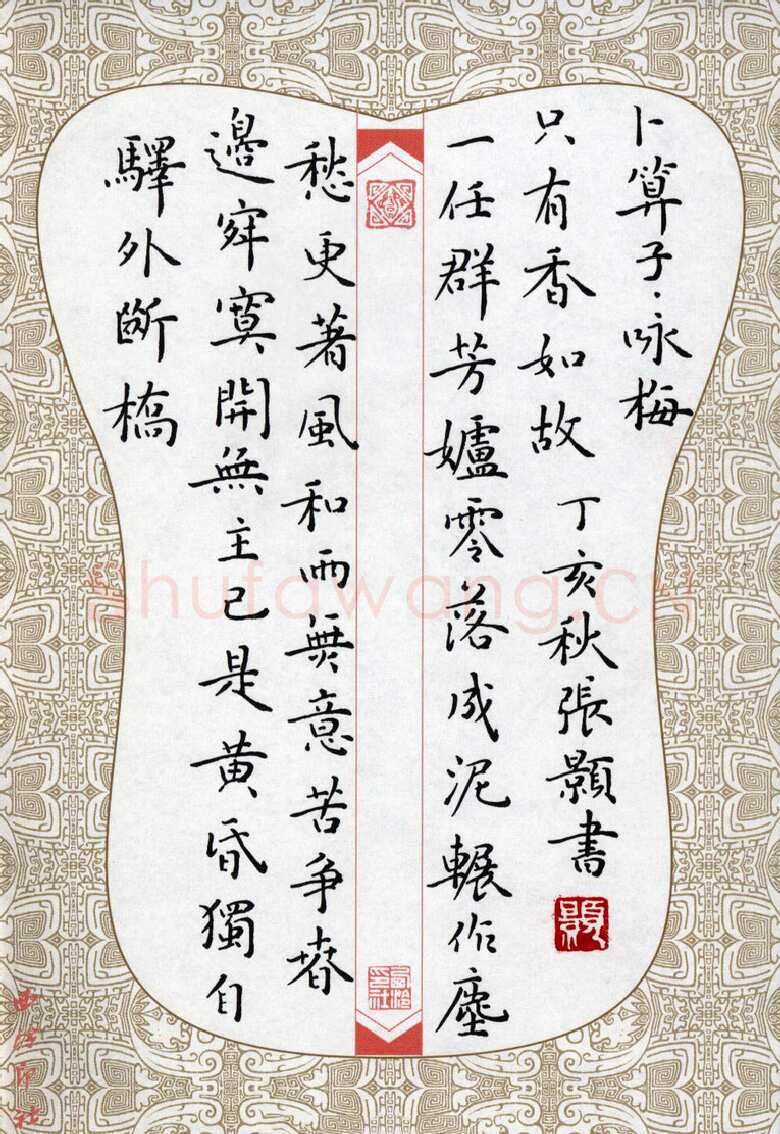 驛外斷橋
邊寂寞開無主已是黃昏獨自
愁更著風和雨無意苦爭春
一任群芳妒零落成泥輾作塵
只有香如故 丁亥秋張顥書
卜算子·咏梅
西泠印社
西泠印社
shufawang.cn